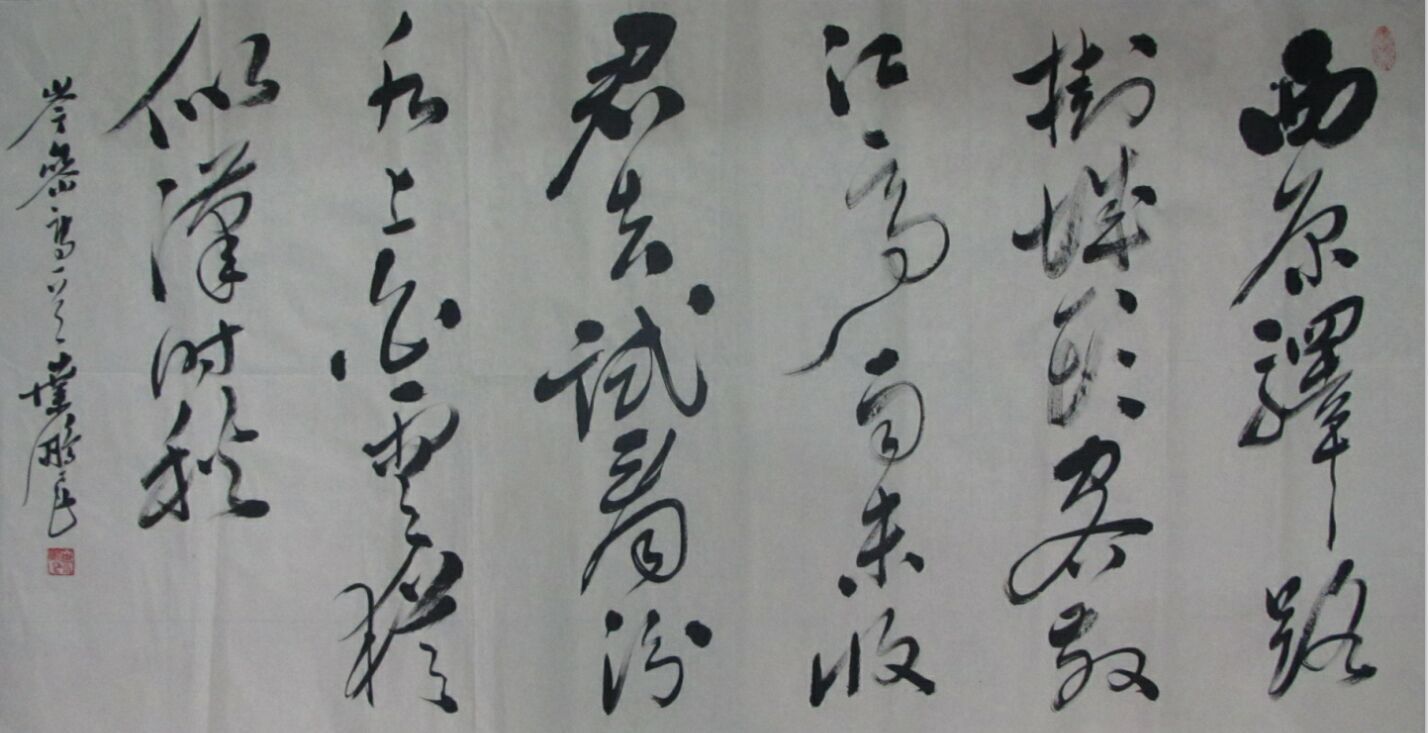 西原驛路
掛城头客散
江亭雨未收
君去試看汾
水上白雲猶
似漢时秋
岑參